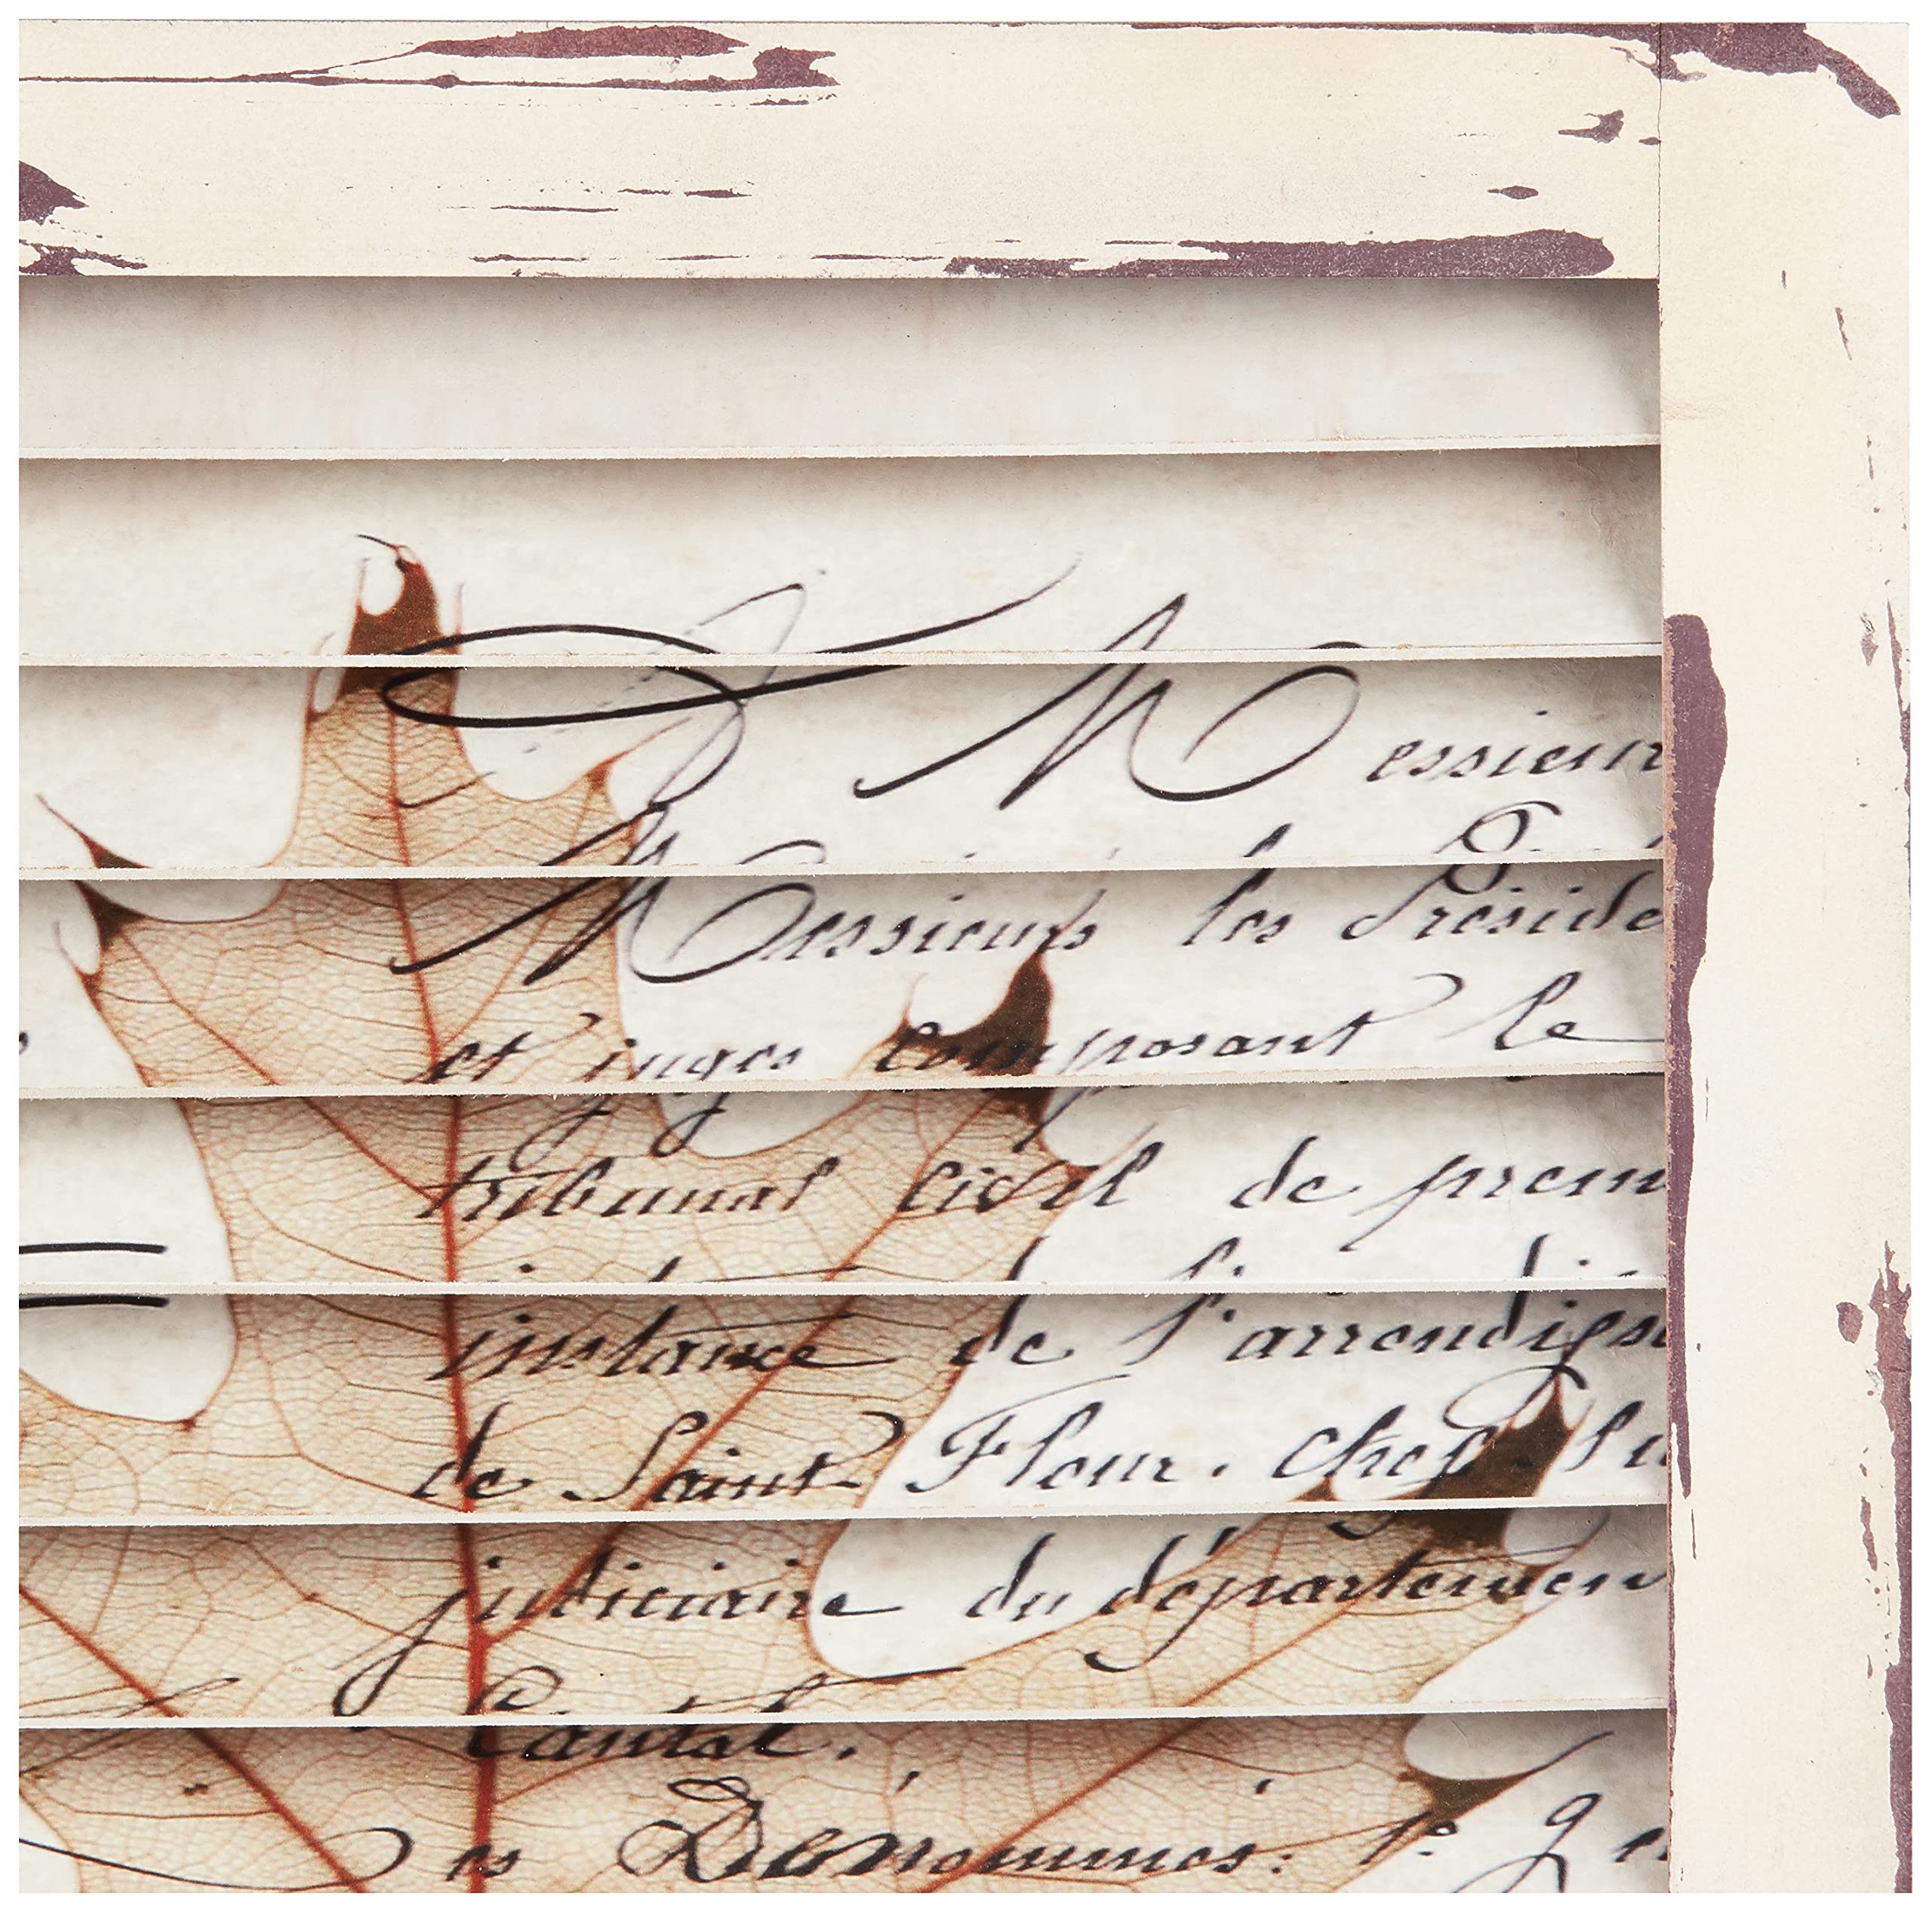 Messieur
Messieurs les Préside
et juges composant le
tribunal civil de prem
instance de l'arrondiss
de Saint Flour. chef lu
judiciaire du départemen
Cantal.
es Dénommés: 1º